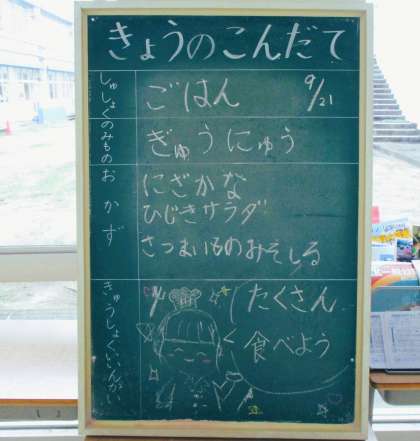 きょうのこんだて
しゅしょく ごはん 9/21
のみもの ぎゅうにゅう
おかず にざかな
ひじきサラダ
さつまいものみそしる
きゅうしょくいいんかい たくさん
食べよう